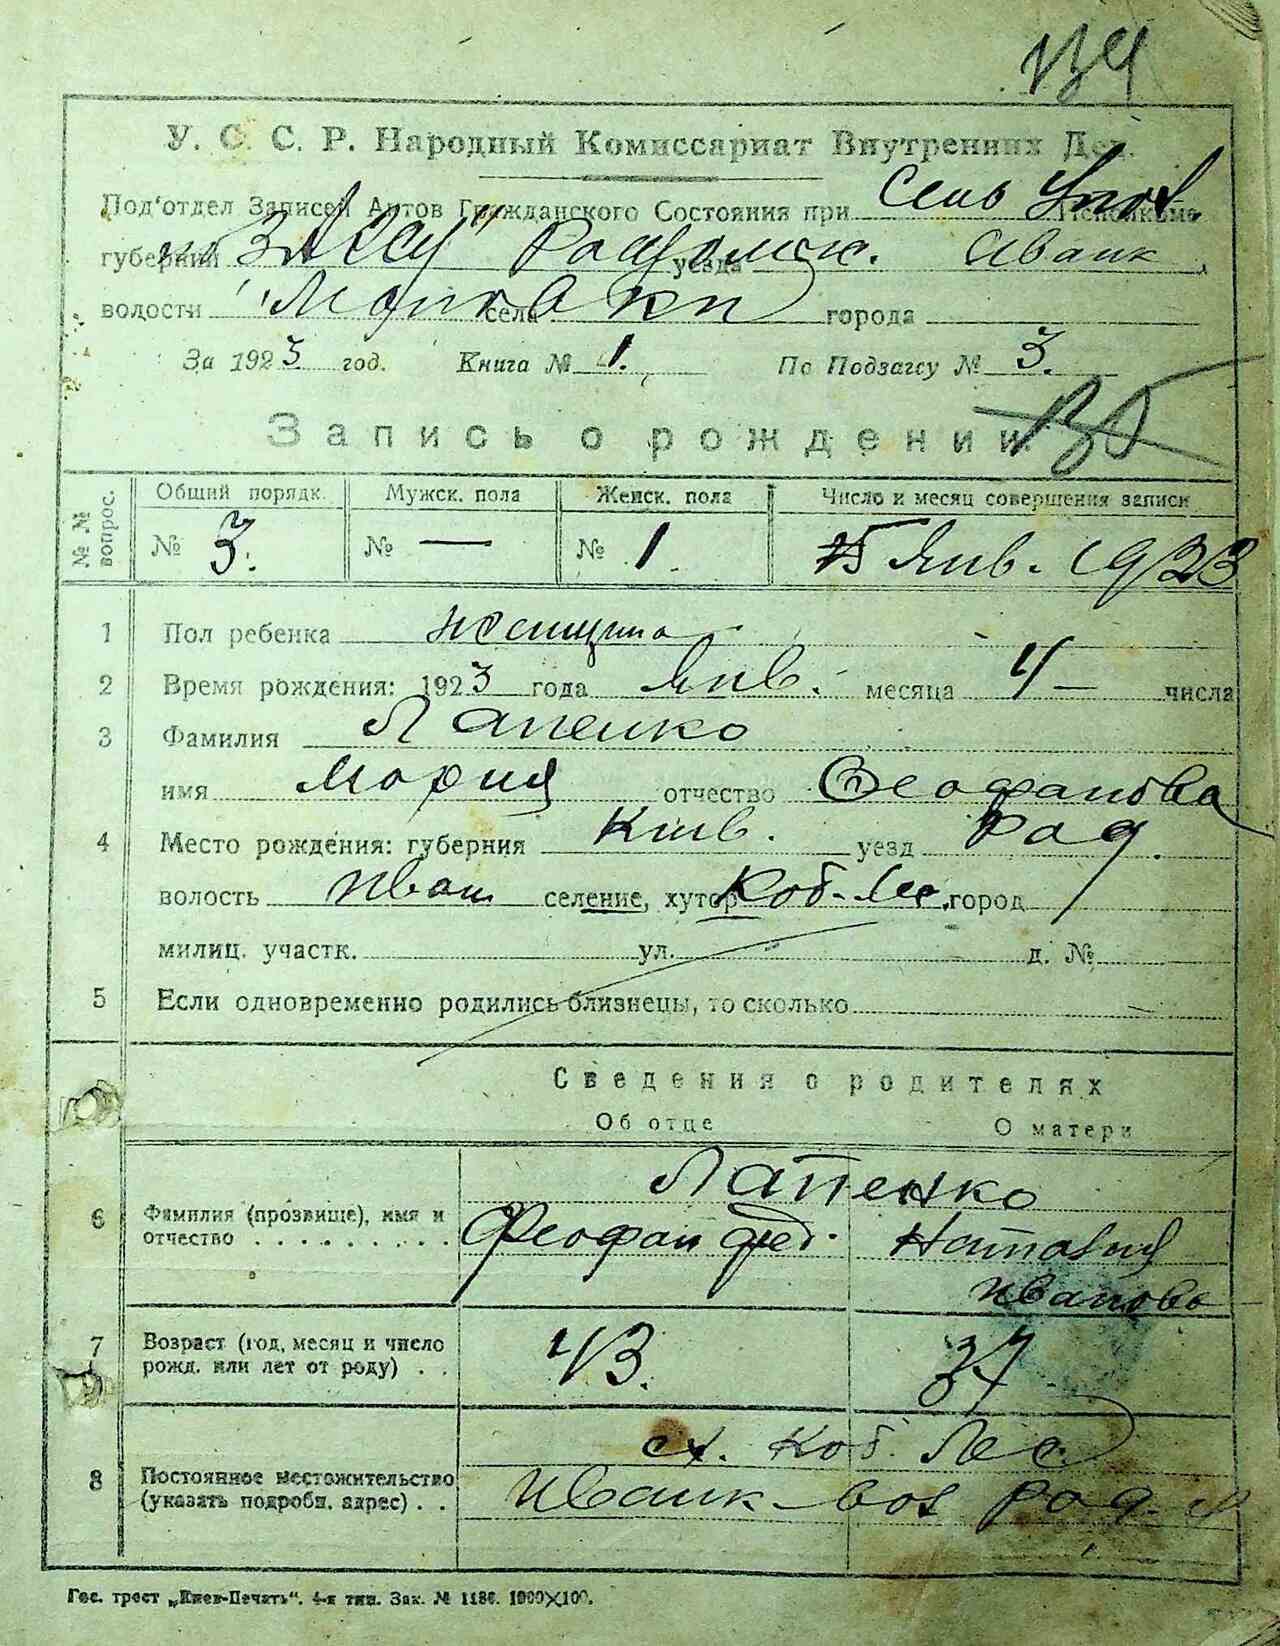 134
У. С. С. Р. Народный Комиссариат Внутренних Дел.
Под'отдел Записей Актов Гражданского Состояния при Сель Упол. Исполкоме
губернии по ЗАГСу Радомск. уезда Иванк
волости села города
За 1923 год. Книга № 1. По Подзагсу № 3.
Запись о рождении
№ № вопрос. Общий порядк. Мужск. пола Женск. пола Число и месяц совершения записи
№ 3. № — № 1. 5 Янв. 1923
1 Пол ребенка женщина
2 Время рождения: 1923 года Янв. месяца 4 — числа
3 Фамилия Лапенко
имя Мария отчество Феофанова
4 Место рождения: губерния Киев. уезд Рад.
волость Иван селение, хутор Коб-Лес. город
милиц. участк. ул. д. №
5 Если одновременно родились близнецы, то сколько —
Сведения о родителях
Об отце О матери
Лапенко
6 Фамилия (прозвище), имя и отчество . . . . . . . . . Феофан Фед. Наталия
Иванова
7 Возраст (год, месяц и число рожд. или лет от роду) . . 43. 37
8 Постоянное местожительство (указать подробн. адрес) . . ст. Коб. Лес.
Иванк-вол Рад-
Гос. трест „Киев-Печать“. 4-я тип. Зак. № 1186. 1000×100.